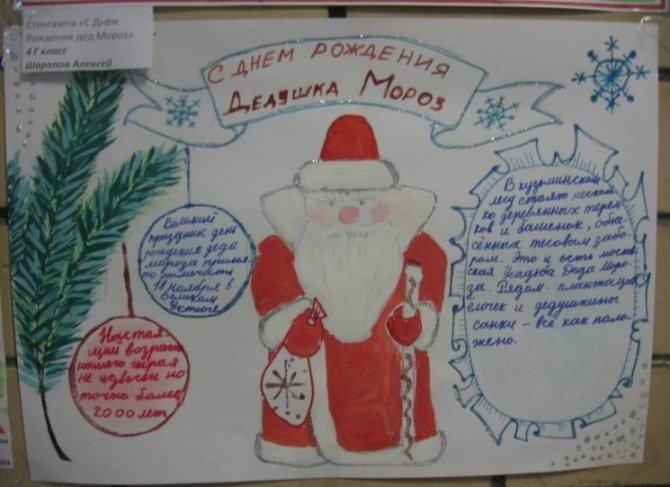 Стенгазета «С Днём
Рождения дед Мороз»
4 Г класс
Шарапов Алексей
С ДНЕМ РОЖДЕНИЯ
ДЕДУШКА МОРОЗ
Великий
праздник день
рождения деда
мороза приня-
то отмечать
18 ноября в
Великом
Устюге
Настоя-
щий возраст
нашего
не известен но
точно более
2000 лет
В кузьминском
лесу стоят несколь-
ко деревянных терем-
ков и башенок, обне-
сённых тесовым забо-
ром. Это и есть москов-
ская Усадьба Деда Моро-
за. Рядом - плантация
ёлочек и дедушкины
санки - всё как поло-
жено.